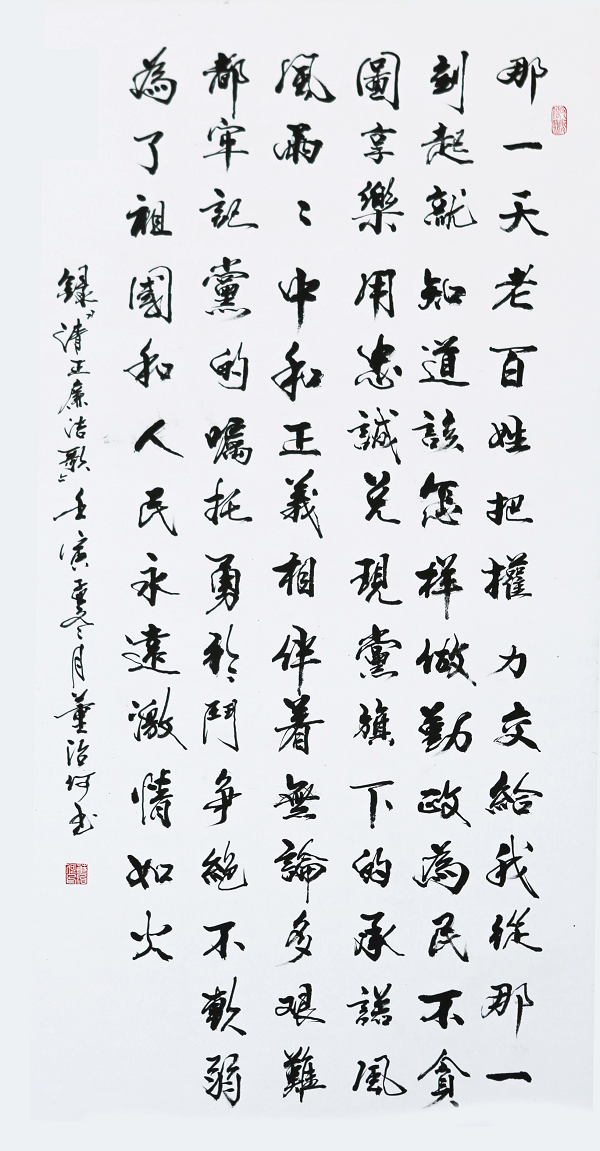 那一天老百姓把權力交給我從那一
刻起就知道該怎樣做勤政為民不貪
圖享樂用忠誠兌現黨旗下的承諾風
風雨〻中和正義相伴着無論多艱難
都牢記黨的囑托勇於鬥爭絕不軟弱
為了祖國和人民永遠激情如火
錄《清正廉洁歌》壬寅冬月董治何书